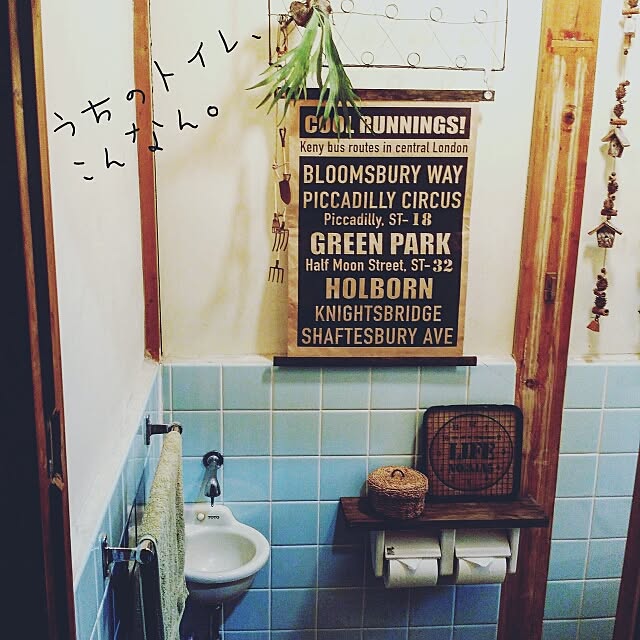 うちのトイレ、
こんなん。
COOL RUNNINGS!
Keny bus routes in central London
BLOOMSBURY WAY
PICCADILLY CIRCUS
Piccadilly, ST-18
GREEN PARK
Half Moon Street, ST-32
HOLBORN
KNIGHTSBRIDGE
SHAFTESBURY AVE
LIFE
TOTO